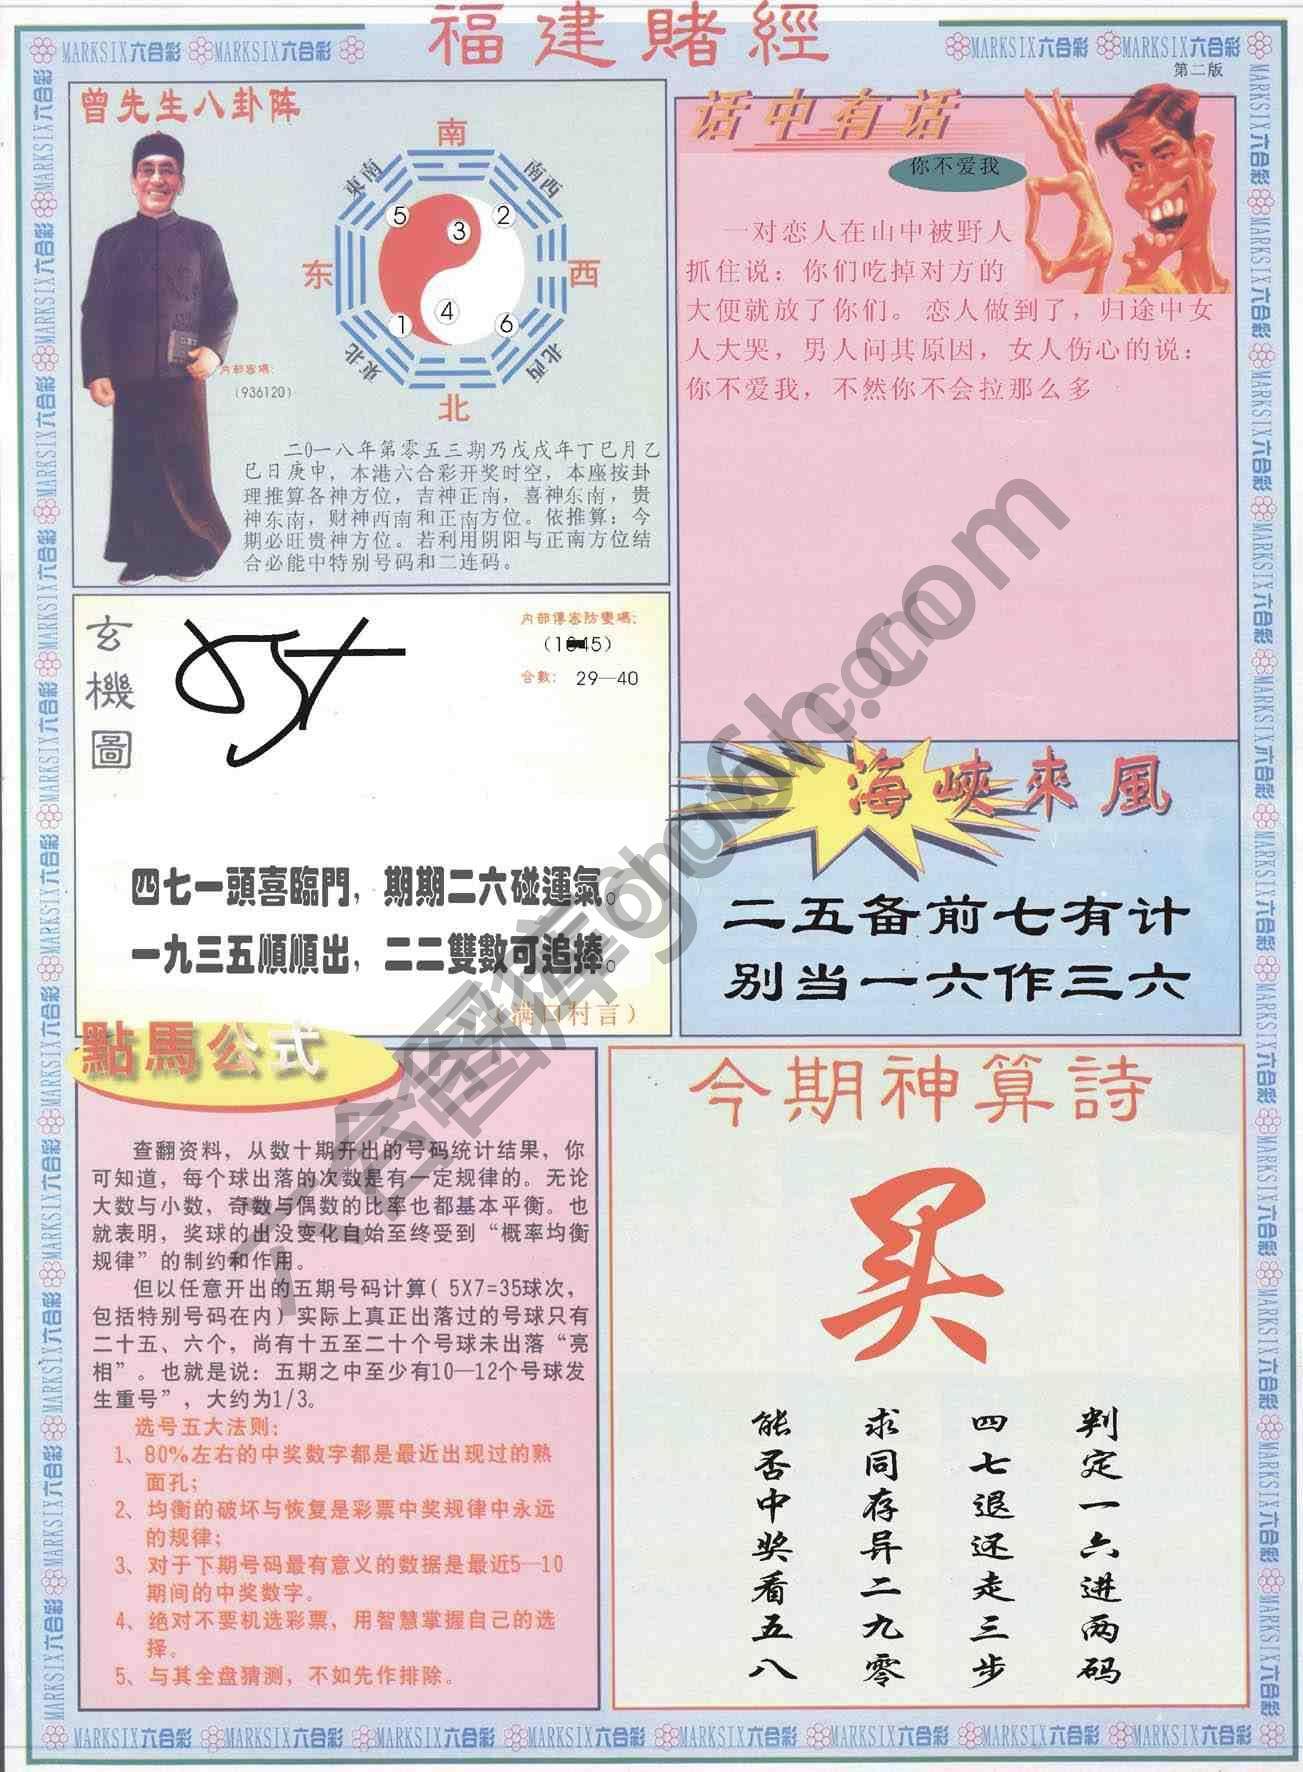 福建賭經
MARKSIX六合彩 MARKSIX六合彩
MARKSIX六合彩 MARKSIX六合彩
第二版
曾先生八卦阵
南
東南
南西
5
3
2
东
西
1
4
6
東北
北西
北
内部密碼:
(936120)
二0一八年第零五三期乃戊戌年丁巳月乙
巳日庚申，本港六合彩开奖时空，本座按卦
理推算各神方位，吉神正南，喜神东南，贵
神东南，财神西南和正南方位。依推算：今
期必旺贵神方位。若利用阴阳与正南方位结
合必能中特别号码和二连码。
话中有话
你不爱我
一对恋人在山中被野人
抓住说：你们吃掉对方的
大便就放了你们。恋人做到了，归途中女
人大哭，男人问其原因，女人伤心的说：
你不爱我，不然你不会拉那么多
玄機圖
内部傳密防變碼:
合數: 29—40
四七一頭喜臨門，期期二六碰運氣。
一九三五順順出，二二雙數可追捧。
（满口村言）
海峽來風
二五备前七有计
别当一六作三六
點馬公式
查翻资料，从数十期开出的号码统计结果，你
可知道，每个球出落的次数是有一定规律的。无论
大数与小数，奇数与偶数的比率也都基本平衡。也
就表明，奖球的出没变化自始至终受到“概率均衡
规律”的制约和作用。
但以任意开出的五期号码计算( 5X7=35球次，
包括特别号码在内) 实际上真正出落过的号球只有
二十五、六个，尚有十五至二十个号球未出落“亮
相”。也就是说：五期之中至少有10—12个号球发
生重号”，大约为1/3。
选号五大法则：
1、80%左右的中奖数字都是最近出现过的熟
面孔；
2、均衡的破坏与恢复是彩票中奖规律中永远
的规律；
3、对于下期号码最有意义的数据是最近5—10
期间的中奖数字。
4、绝对不要机选彩票，用智慧掌握自己的选
择。
5、与其全盘猜测，不如先作排除。
今期神算詩
买
判定一六进两码
四七退还走三步
求同存异二九零
能否中奖看五八
MARKSIX六合彩 MARKSIX六合彩 MARKSIX六合彩 MARKSIX六合彩 MARKSIX六合彩 MARKSIX六合彩 MARKSIX六合彩 MARKSIX六合彩